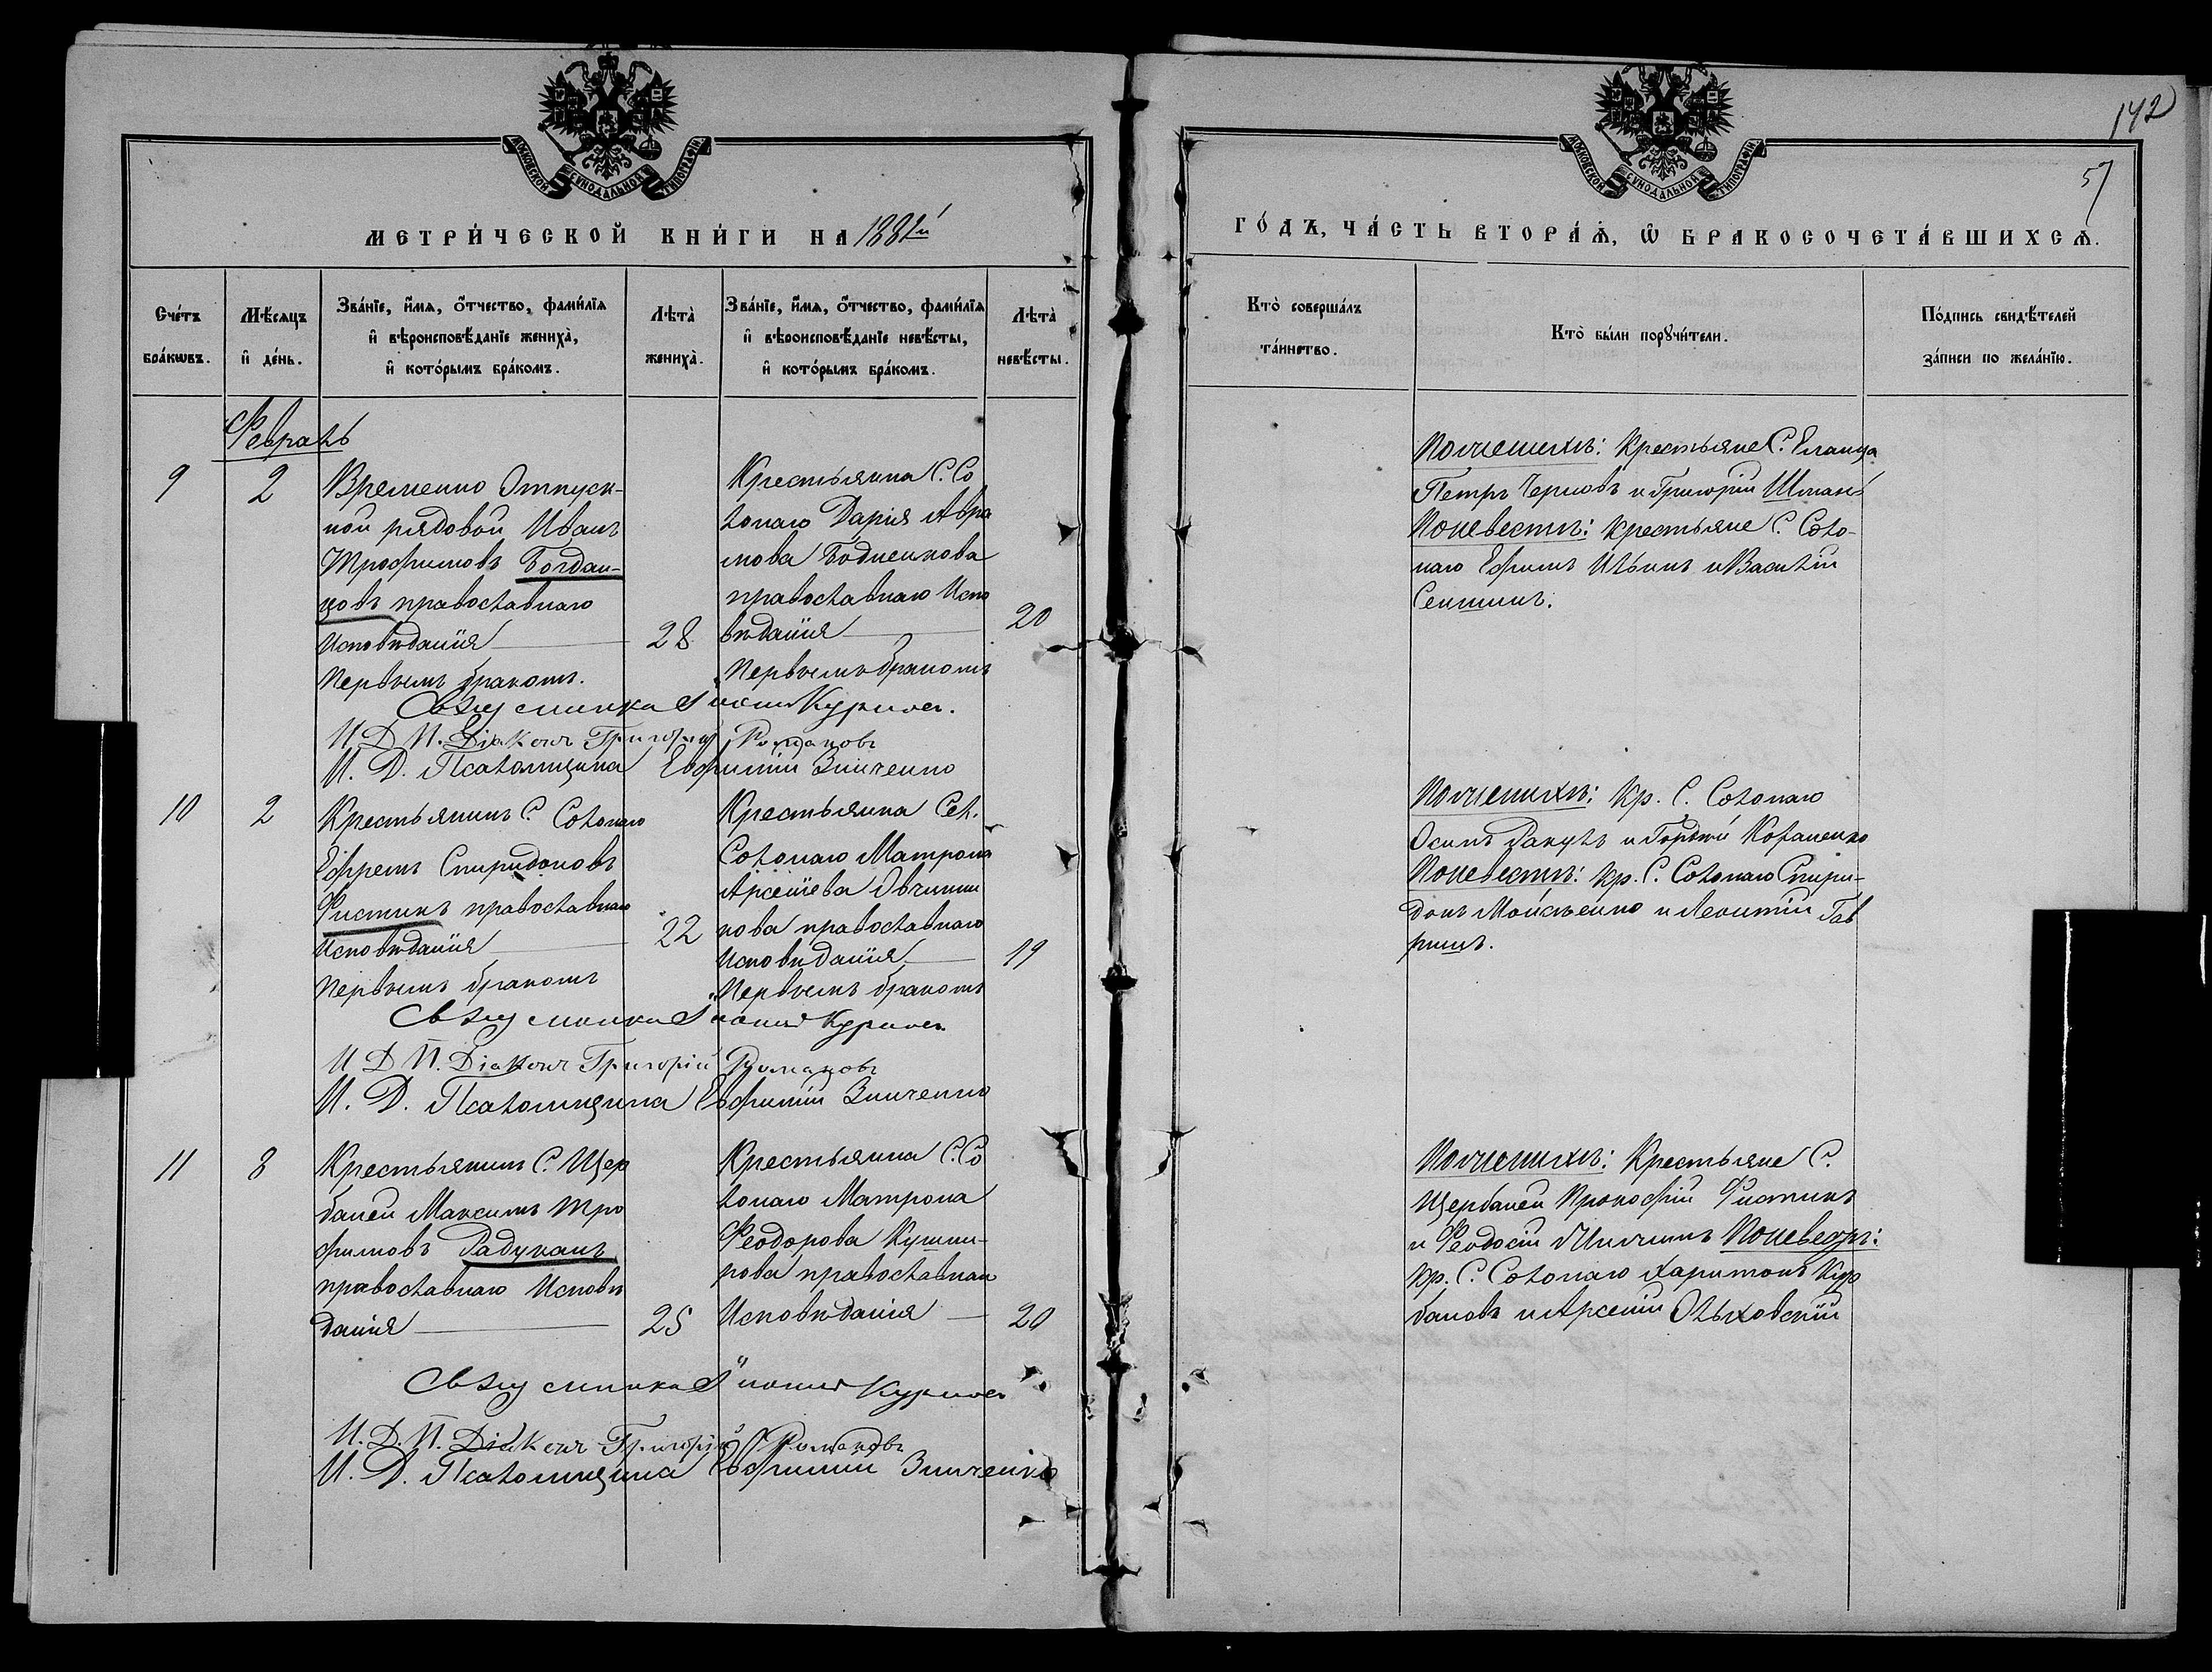 142
5
МОСКОВСКОЙ СѴНОДАЛЬНОЙ ТИПОГРАФІИ
МОСКОВСКОЙ СѴНОДАЛЬНОЙ ТИПОГРАФІИ
МЕТРИ́ЧЕСКОЙ КНИ́ГИ НА 1881й
ГО́ДЪ, ЧА́СТЬ ВТОРА́Ѧ, Ѡ БРАКОСОЧЕТА́ВШИХСѦ.
Сче́тъ бра́кѡвъ.
Мѣ́сѧцъ и҆ де́нь.
Зва́нїе, и҆́мѧ, ѻ҆́тчество, фами́лїѧ
и҆ вѣроисповѣ́данїе жениха̀,
и҆ кото́рымъ бра́комъ.
Лѣта̀ жениха̀.
Зва́нїе, и҆́мѧ, ѻ҆́тчество, фами́лїѧ
и҆ вѣроисповѣ́данїе невѣ́сты,
и҆ кото́рымъ бра́комъ.
Лѣта̀ невѣ́сты.
Кто̀ соверша́лъ та́инство.
Кто̀ бы́ли порꙋчи́тели.
По́дпись свидѣ́телей
за́писи по жела́нїю.
Февраль
9
2
Временно Отпуск-
ной рядовой Иванъ
Трофимовъ Богдан-
цовъ православнаго
Исповѣданія
28
Первымъ бракомъ.
Крестьянка С. Со
лонаго Дарія Авра
мова Бодненкова
православнаго Испо
вѣданія
20
Первымъ бракомъ
Курилов.
И. Д. П. Діаконъ Григорій Романовъ
И. Д. Псаломщика Евфимій Зинченко
По женихѣ: Крестьяне С. Еланца
Петръ Черновъ и Григорій
По невестѣ: Крестьяне С. Соло-
наго Ефимъ Ильинъ и Василій
Сенишинъ.
10
2
Крестьянинъ С. Солонаго
Ефремъ Спиридоновъ
Фистикъ православнаго
Исповѣданія
22
Первымъ бракомъ
Крестьянка Сел.
Солонаго Матрона
Арсеніева Овчинни
кова православнаго
Исповѣданія
19
Первымъ бракомъ
Курилов
И Д П. Діаконъ Григорій Романовъ
И. Д. Псаломщика Евфимій Зинченко
По женихѣ: Кр. С. Солонаго
Осипъ Ракулъ и Гордѣй Коваленко
По невестѣ: Кр. С. Солонаго Спири-
донъ Мойсѣенко и Леонтій Гав
ришъ.
11
8
Крестьянинъ С. Щер
баней Максимъ Тро
фимовъ Радуканъ
православнаго Исповѣ
данія
25
Крестьянка С. Со
лонаго Матрона
Феодорова Кушни-
рова православнаго
Исповѣданія
20
Курилов
И. Д. П. Діаконъ Григорій Романовъ
И. Д. Псаломщика Евфимій Зинченко
По женихѣ: Крестьяне С.
Щербаней Прокофій Фистикъ
и Феодосій По невестѣ:
Кр. С. Солонаго Харитонъ Кур
бановъ и Арсеній Ольховскій